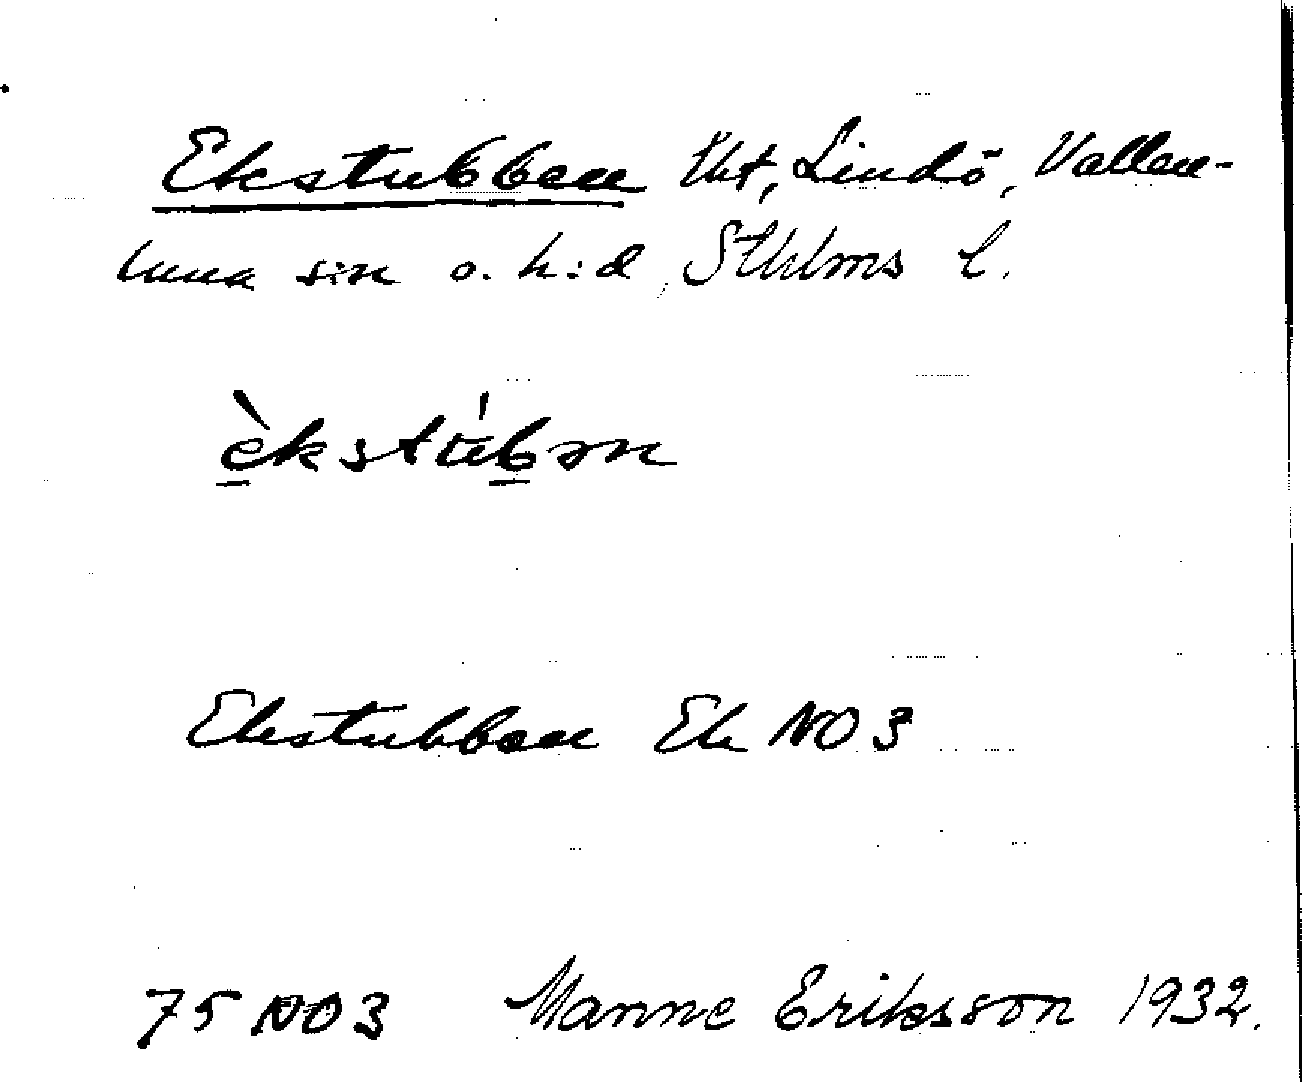 Ekstubben tht, Lindö, Vallen-
tuna s:n o. h:d, Sthlms l.
èkstúbən
Ekstubben Ek NO 3
75 NO 3 Manne Eriksson 1932.